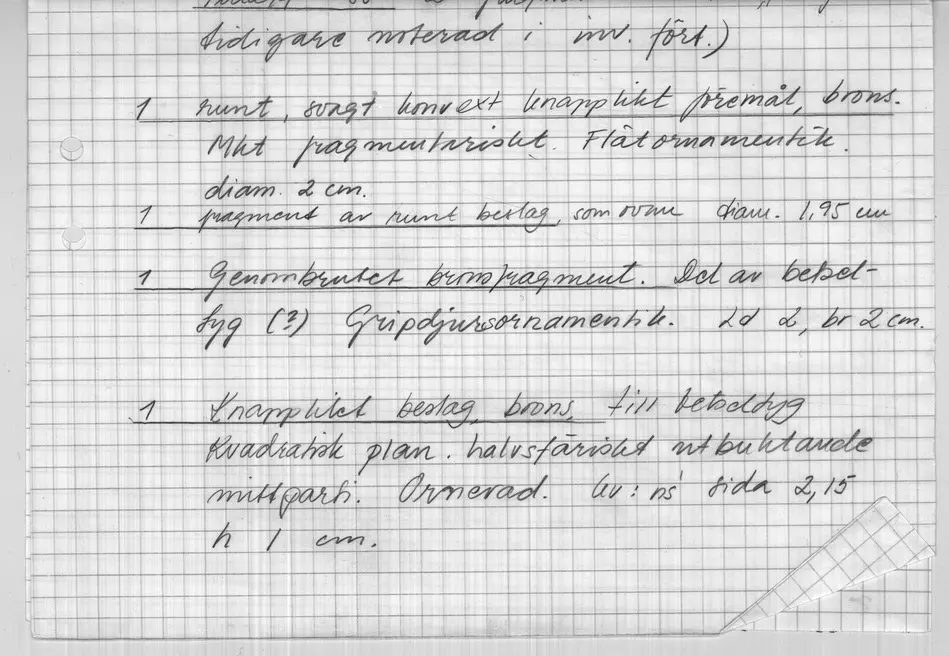 tidigare noterad i inv. fört.)
1 runt, svagt konvext knapplikt föremål, brons.
Mkt fragmentariskt. Flätornamentik.
diam. 2 cm.
1 fragment av runt beslag, som ovan diam. 1,95 cm
1 Genombrutet bronsfragment. Del av betsel-
tyg (?) Gripdjursornamentik. Ld 2, br 2 cm.
1 Knapplikt beslag, brons, till betseltyg
Kvadratisk plan. halvsfäriskt utbuktande
mittparti. Ornerad. kv:ns sida 2,15
h 1 cm.